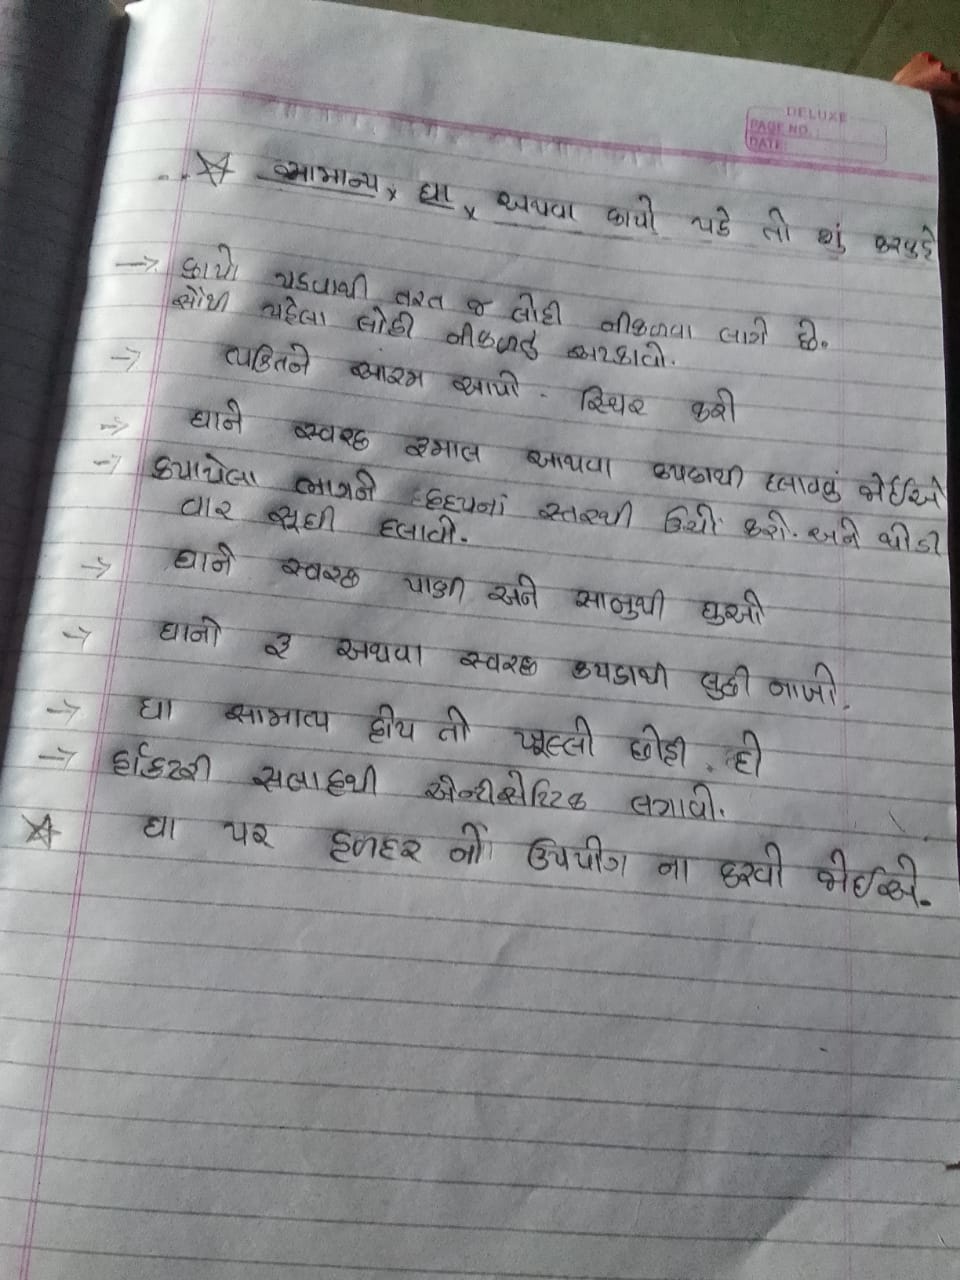 DELUXE
PAGE NO.:
DATE:
☆ સામાન્ય x ઘા x અથવા કાપો પડે તો શું કરવુ
→ કાપો પડવાથી તરત જ લોહી નીકળવા લાગે છે.
સૌથી પહેલા લોહી નીકળતુ અટકાવો.
→ વ્યકિતને આરમ આપી. સ્થિર કરી
→ ઘાને સ્વચ્છ રૂમાલ આથવા કપડાથી દબાવવું જોઈએ
→ કપાયેલા ભાગને હૃદયનાં સ્તરથી ઉંચો કરો. અને થોડી
વાર સૂધી દબાવો.
→ ઘાને સ્વચ્છ પાણી અને સાબુથી ઘુઓ
→ ઘાનો રૂ અથવા સ્વચ્છ કપડાથી લુછી નાખો.
→ ઘા સામાન્ય હોય તો ખૂલ્લો છોડી. દો
→ ર્ડાકટરી સલાહથી એન્ટીસેપ્ટિક લગાવો.
☆ ઘા પર હળદર નોં ઉપયોગ ના કરવો જોઈએ.